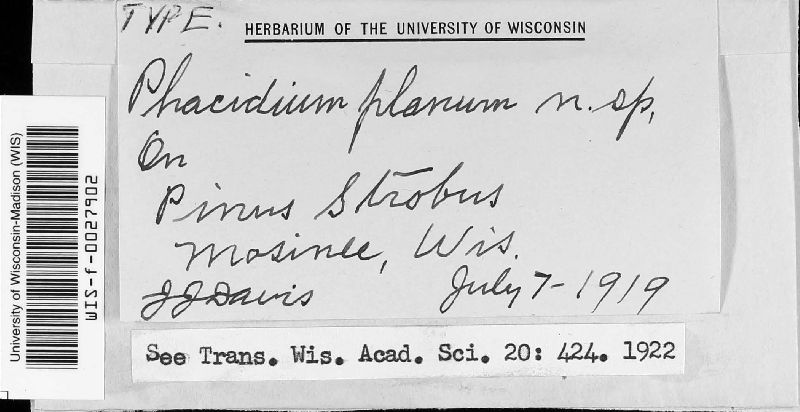 TYPE.
HERBARIUM OF THE UNIVERSITY OF WISCONSIN
Phacidium planum n. sp.
On
Pinus Strobus
Mosinee, Wis.
JJDavis July 7-1919
See Trans. Wis. Acad. Sci. 20: 424. 1922
University of Wisconsin-Madison (WIS)
WIS-f-0027902